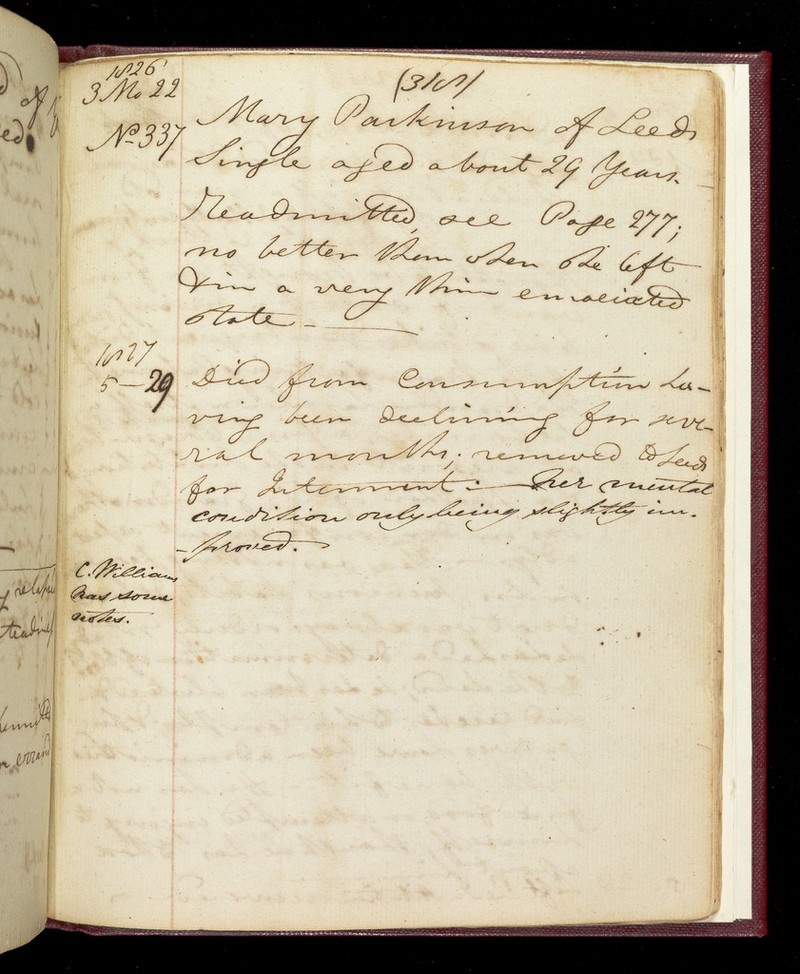 (318)
1826
3 Mo 22
No 337
Mary Parkinson of Leeds
Single aged about 29 Years
Readmitted, see Page 277;
no better than when she left
& in a very thin emaciated
state.
1827
5 — 29
Died from Consumption ha-
ving been declining for seve-
ral months; removed to Leeds
for Interment: — Her mental
condition only being slightly im-
-proved.
C. Williams
has some
notes.